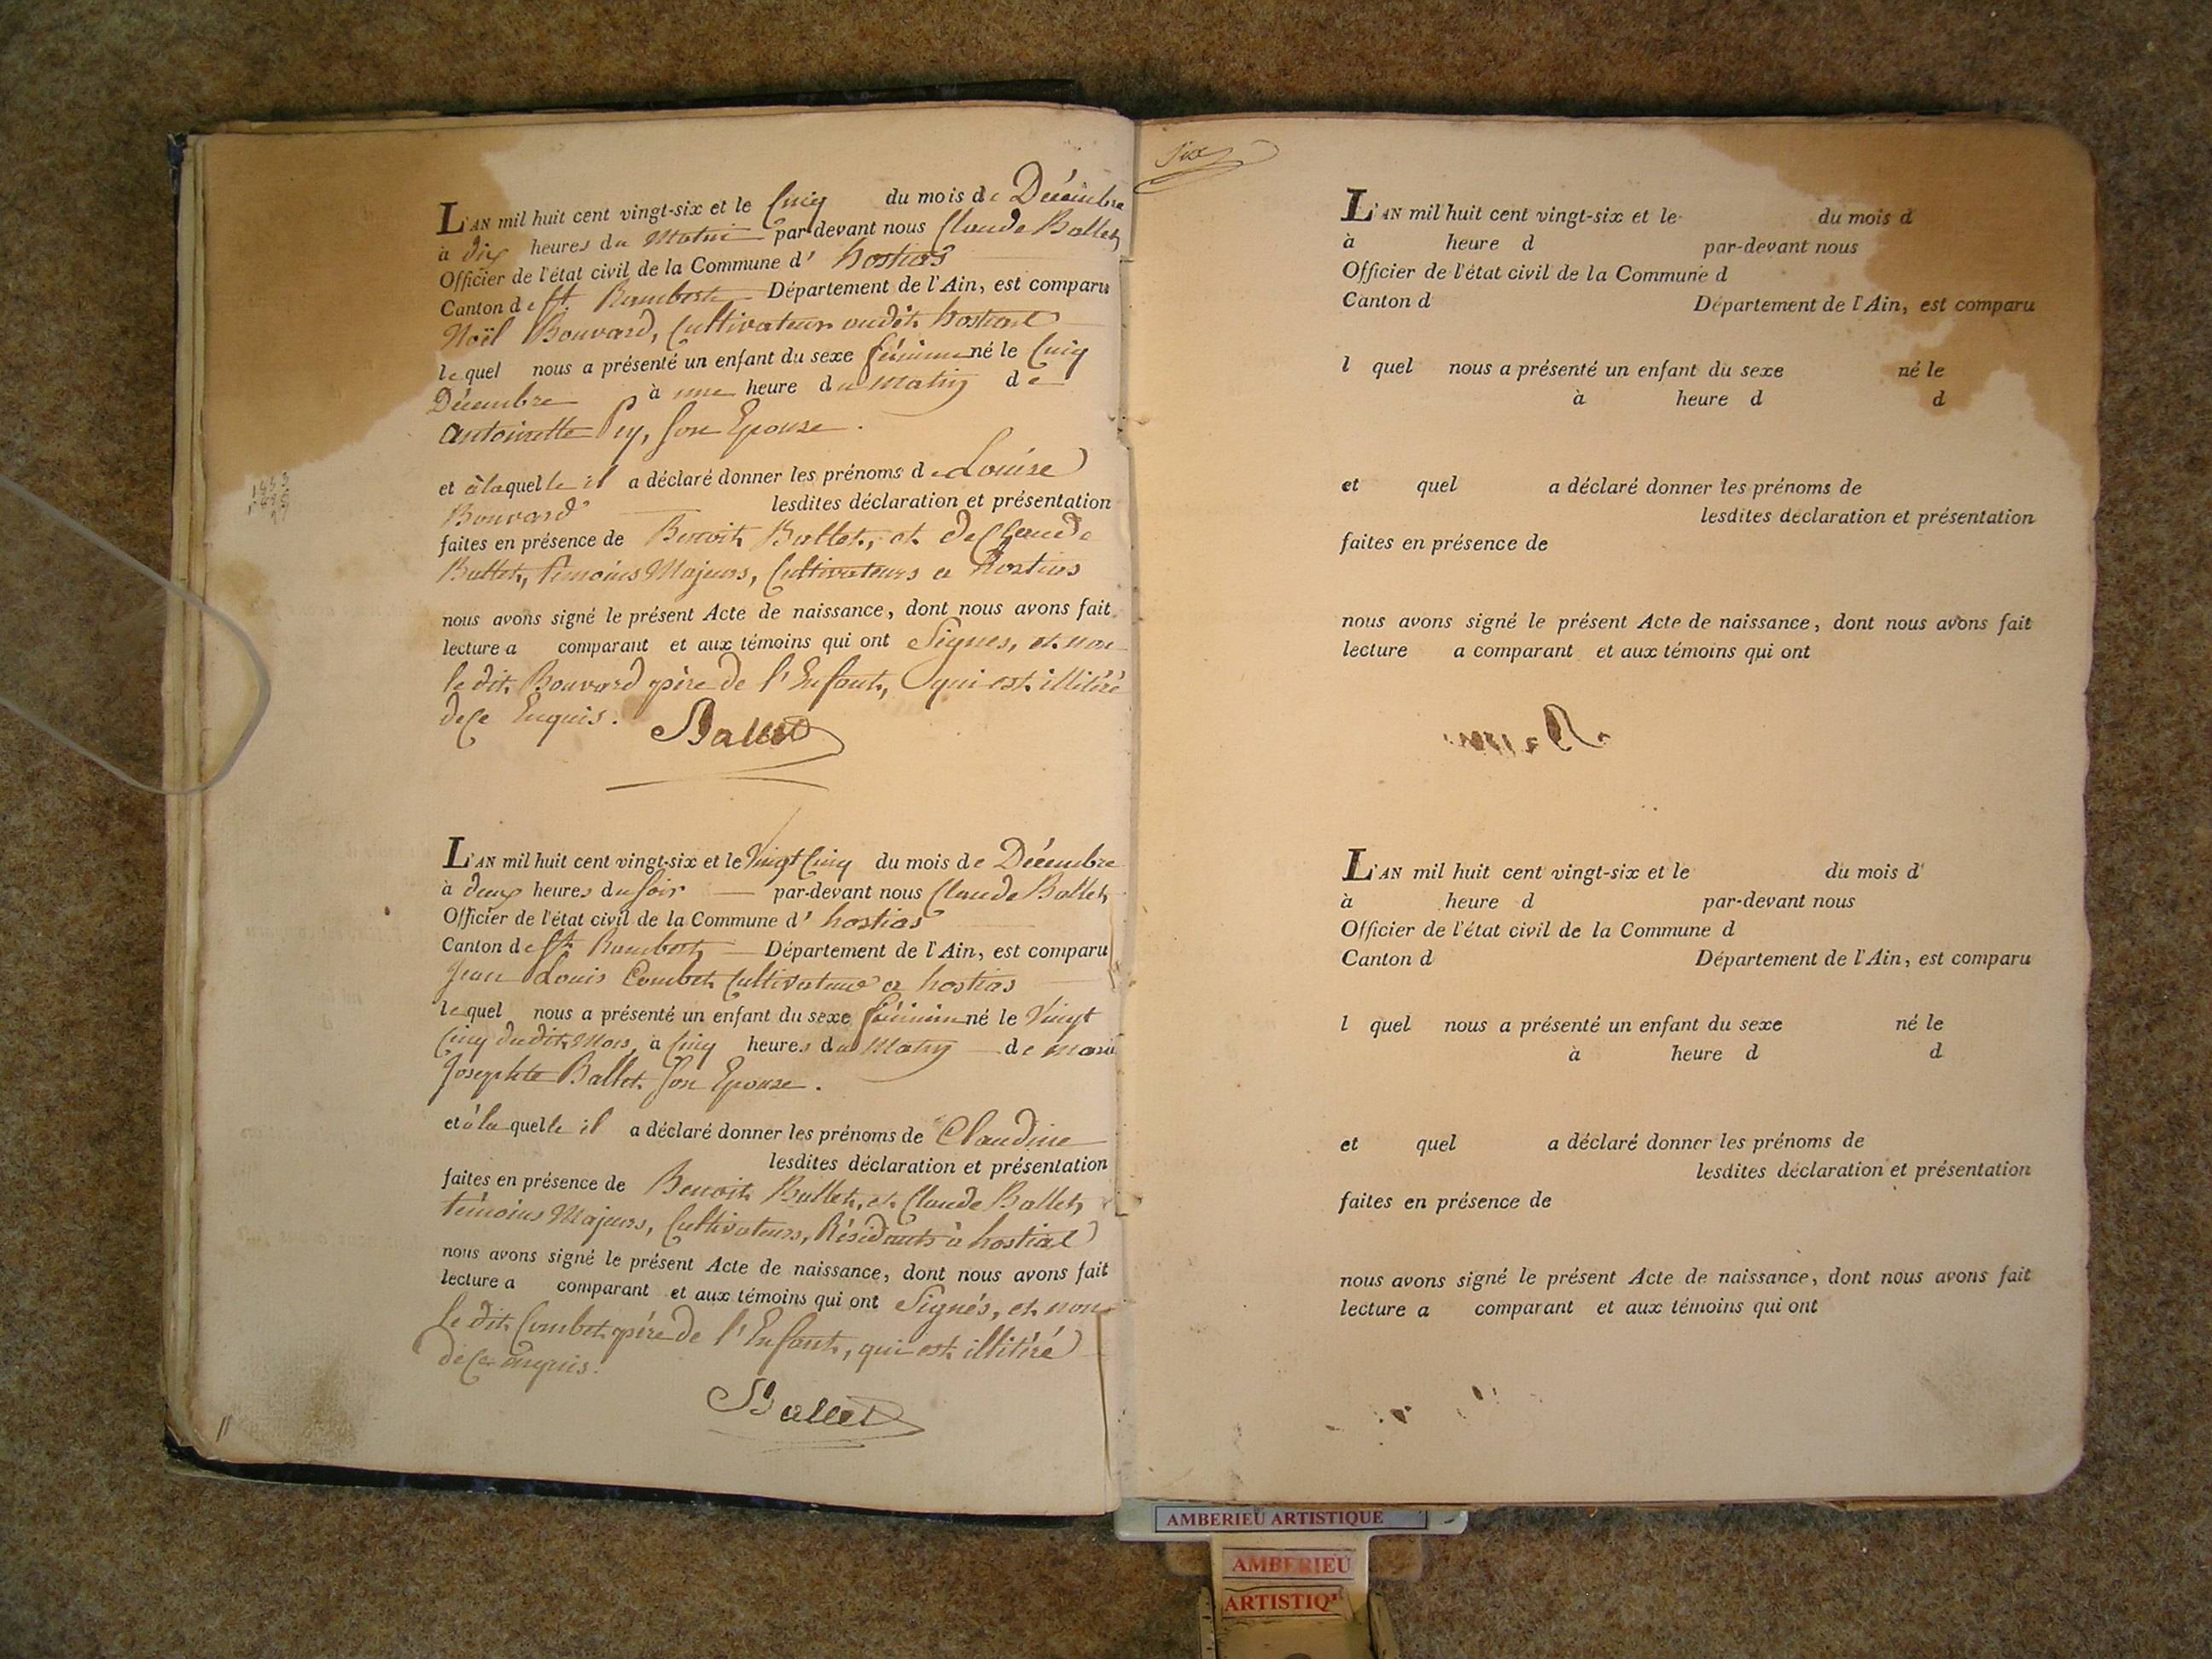 L'AN mil huit cent vingt-six et le Cinq du mois de Décembre
à dix heures du Matin par-devant nous Claude Ballet
Officier de l'état civil de la Commune d' hostias
Canton de St. Rambert Département de l'Ain, est comparu
Noël Bouvard, Cultivateur audit hostias
lequel nous a présenté un enfant du sexe féminin né le Cinq
Décembre à une heure du Matin de
Antoinette Pey, son Epouse.
et à laquelle il a déclaré donner les prénoms de Louise
Bouvard lesdites déclaration et présentation
faites en présence de Benoit Bullet, et de Claude
Bullet, témoins Majeurs, Cultivateurs a hostias
nous avons signé le présent Acte de naissance, dont nous avons fait
lecture a comparant et aux témoins qui ont Signés, et non
le dit Bouvard père de l'Enfant, qui est illitéré
de ce Enquis.
Ballet
L'AN mil huit cent vingt-six et le Vingt Cinq du mois de Décembre
à deux heures du soir par-devant nous Claude Ballet
Officier de l'état civil de la Commune d' hostias
Canton de St. Rambert Département de l'Ain, est comparu
Jean Louis Combet Cultivateur a hostias
lequel nous a présenté un enfant du sexe féminin né le Vingt
Cinq dudit Mois, à Cinq heures du Matin de marie
Josephte Ballet son Epouse.
et à laquelle il a déclaré donner les prénoms de Claudine
lesdites déclaration et présentation
faites en présence de Benoit Bullet, et Claude Ballet
témoins Majeurs, Cultivateurs, Résidants à hostias
nous avons signé le présent Acte de naissance, dont nous avons fait
lecture a comparant et aux témoins qui ont Signés, et non
le dit Combet père de l'Enfant, qui est illitéré
de ce enquis.
Ballet
Six
L'AN mil huit cent vingt-six et le du mois d
à heure d par-devant nous
Officier de l'état civil de la Commune d
Canton d Département de l'Ain, est comparu
l quel nous a présenté un enfant du sexe né le
à heure d d
et quel a déclaré donner les prénoms de
lesdites déclaration et présentation
faites en présence de
nous avons signé le présent Acte de naissance, dont nous avons fait
lecture a comparant et aux témoins qui ont
L'AN mil huit cent vingt-six et le du mois d'
à heure d par-devant nous
Officier de l'état civil de la Commune d
Canton d Département de l'Ain, est comparu
l quel nous a présenté un enfant du sexe né le
à heure d d
et quel a déclaré donner les prénoms de
lesdites déclaration et présentation
faites en présence de
nous avons signé le présent Acte de naissance, dont nous avons fait
lecture a comparant et aux témoins qui ont
AMBERIEU ARTISTIQUE
AMBERIEU
ARTISTIQ